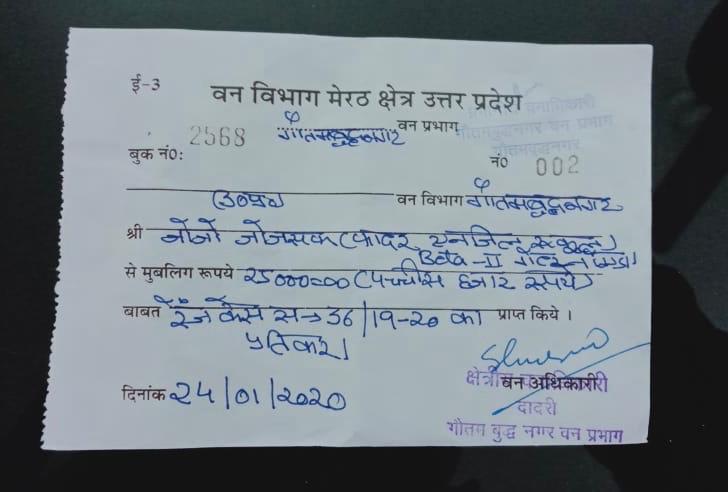 ई-3
वन विभाग मेरठ क्षेत्र उत्तर प्रदेश
गौतमबुद्धनगर वन प्रभाग
गौतमबुद्धनगर वन प्रभाग
गौतमबुद्धनगर
बुक नं0: 2568
नं0 002
वन विभाग गौतमबुद्धनगर
श्री जोजो जोजसक (फादर
Beta-II
से मुबलिग रूपये 25000=00 (पच्चीस हजार रूपये)
बाबत रेंज केस स→ 36/19-20 का प्राप्त किये ।
प्रतिकर।
दिनांक 24/01/2020
वन अधिकारी
दादरी
गौतम बुद्ध नगर वन प्रभाग